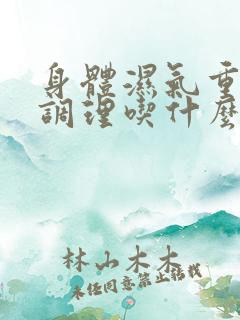 身體濕氣重
調理喫什麼
林山木木
未經同意禁止搬我